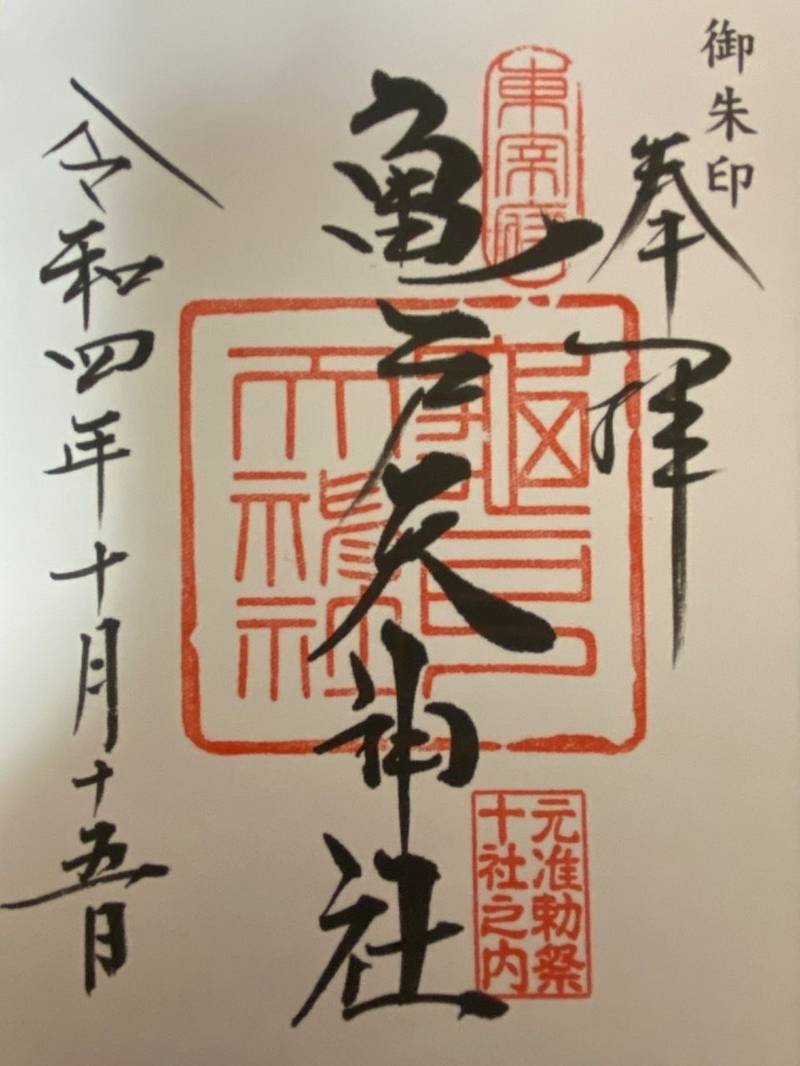 御朱印
奉拝
東宰府
亀戸天神社
元准勅祭
十社之内
令和四年十月十五日